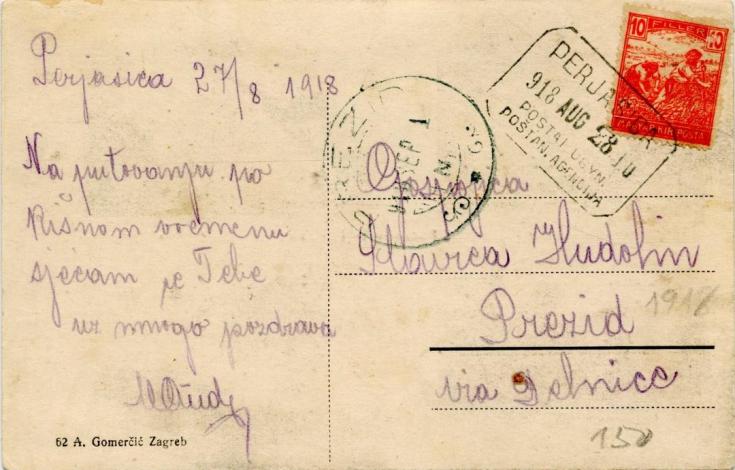 Perjasica 27/8 1918
Na putovanju po
kišnom vremenu
sjećam se Tebe
uz mnogo pozdrava
62 A. Gomerčić Zagreb
10 FILLER 10
MAGYAR KIR. POSTA
918 AUG 28
POSTAI ÜGYN.
POŠTAN. AGENCIJA
PREZID
SEP 1
Gospojica
Slavica Hudolin
Prezid
via Delnice
1918
150